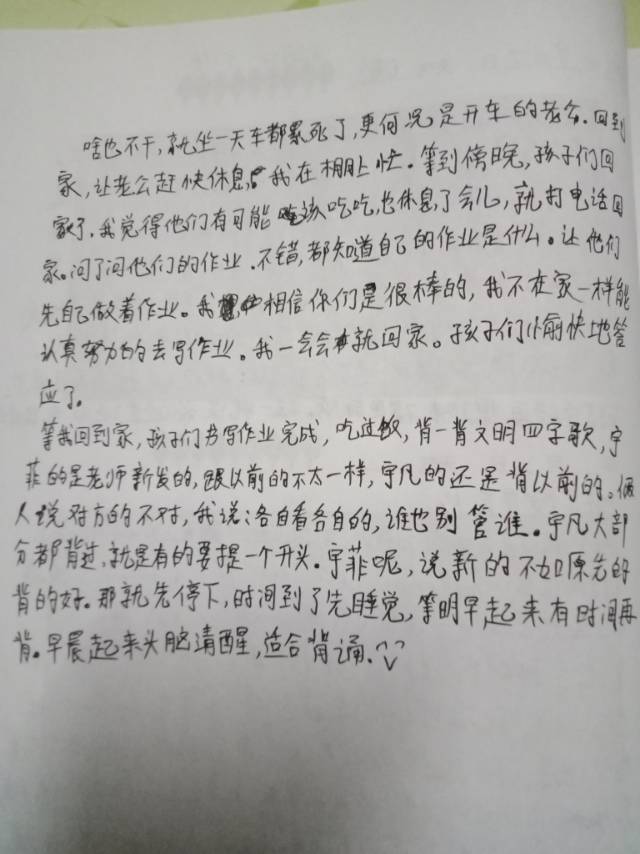 啥也不干,就坐一天车都累死了,更何况是开车的老公.回到
家,让老公赶快休息,我在棚上忙.等到傍晚,孩子们回
家了.我觉得他们有可能该吃吃,也休息了会儿,就打电话回
家.问了问他们的作业.不错,都知道自己的作业是什么.让他们
先自己做着作业.我相信你们是很棒的,我不在家一样能
认真努力的去写作业.我一会会就回家.孩子们愉快地答
应了.
等我回到家,孩子们书写作业完成,吃过饭,背一背文明四字歌,宇
菲的是老师新发的,跟以前的不太一样,宇凡的还是背以前的.俩
人说对方的不对,我说:各自看各自的,谁也别管谁.宇凡大部
分都背过,就是有的要提一个开头.宇菲呢,说新的不如原先的
背的好.那就先停下,时间到了先睡觉,等明早起来有时间再
背.早晨起来头脑清醒,适合背诵.